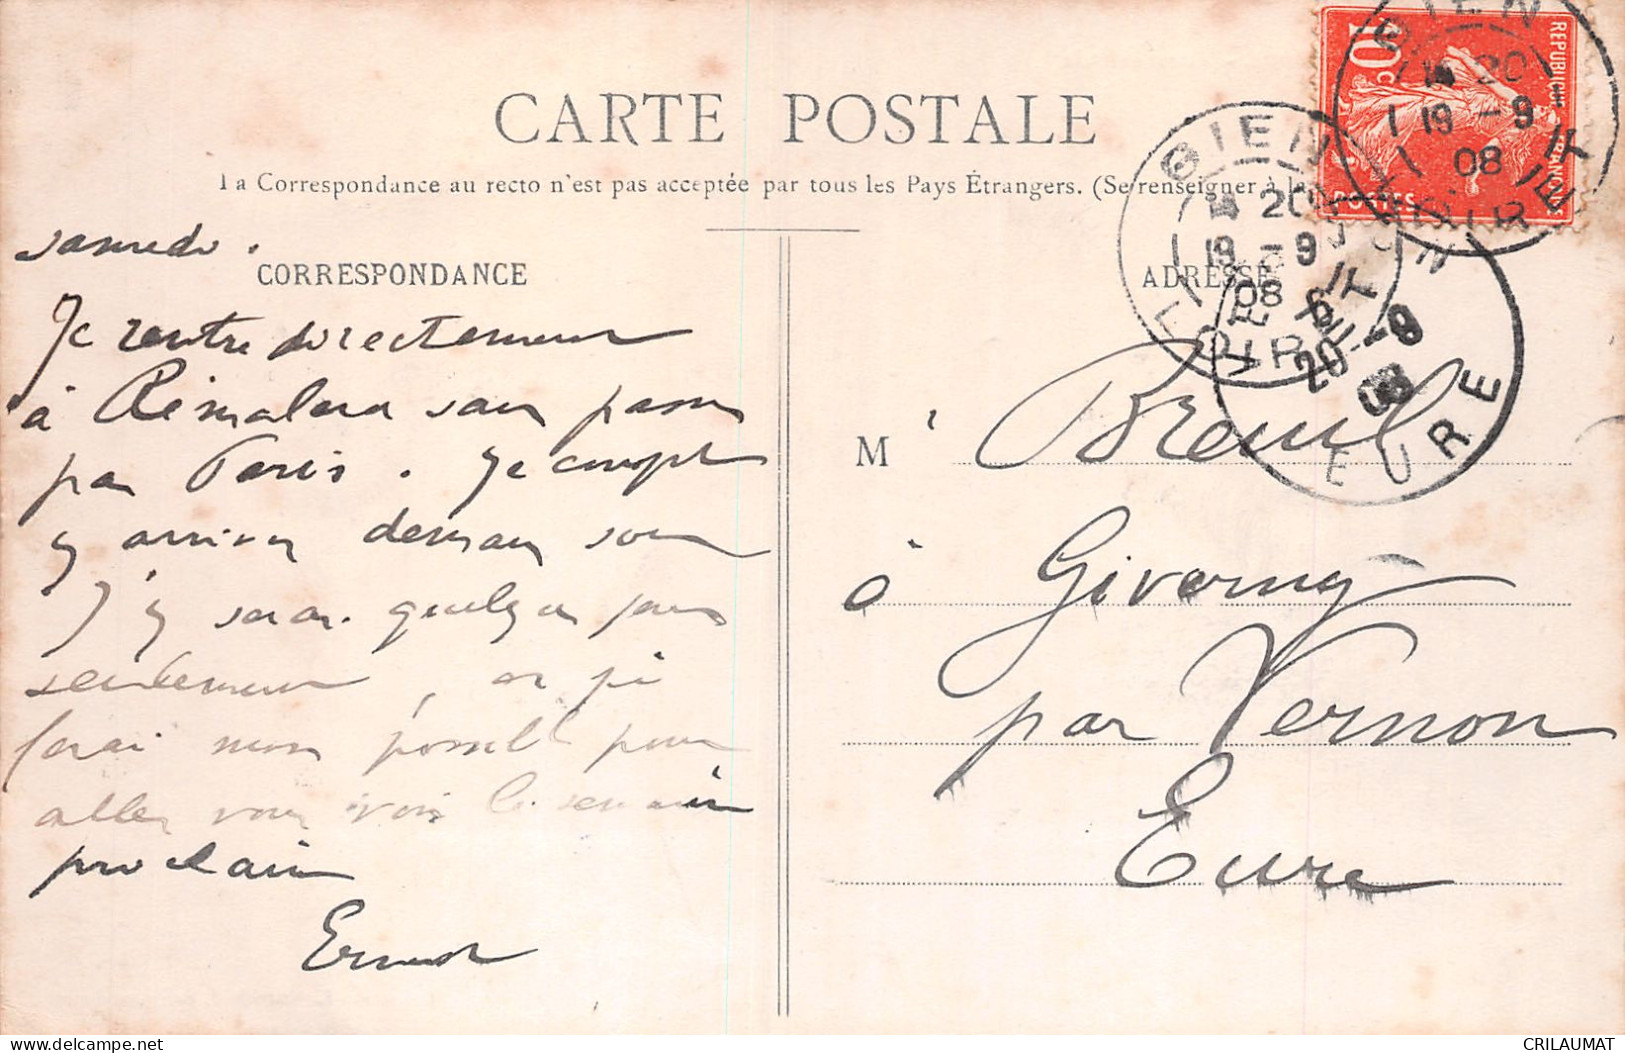 CARTE POSTALE
La Correspondance au recto n'est pas acceptée par tous les Pays Étrangers. (Se renseigner à la
samedi.
CORRESPONDANCE
Je rentre directement
à Rémalard sans passer
par Paris. Je compte
y arriver demain soir
J'y serai quelques jours
seulement, et je
ferai mon possible pour
aller vous voir la semaine
prochaine
Ernest
ADRESSE
M r Breuil
à Giverny
par Vernon
Eure
REPUBLIQUE FRANÇAISE
10 c
POSTES
GIEN
20
19 -9
08
LOIRET
GIEN
20
19 -9
08
LOIRET
VERNON
20 -9
08
EURE
CRILAUMAT